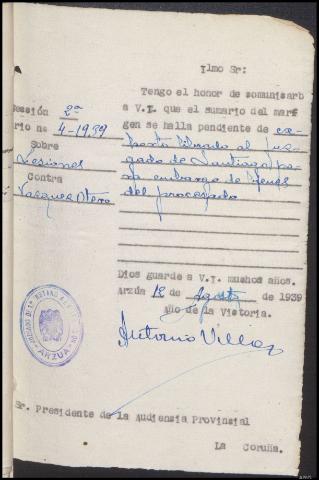 Ilmo Sr:
Tengo el honor de comunicarb
a V.I. que el sumario del mar
gen se halla pendiente de ex-
horto librado al juz-
gado de Santiago pa-
ra embargo de bienes
del procesado
Sección 2ª
rio nº 4-1939
Sobre
Lesiones
Contra
Vazquez Otero
Dios guarde a V.I. muchos años.
Arzúa 12 de Agosto de 1939
Año de la Victoria.
Antonio Villar
ARZUA
Sr. Presidente de la Audiensia Provincial
La Coruña.